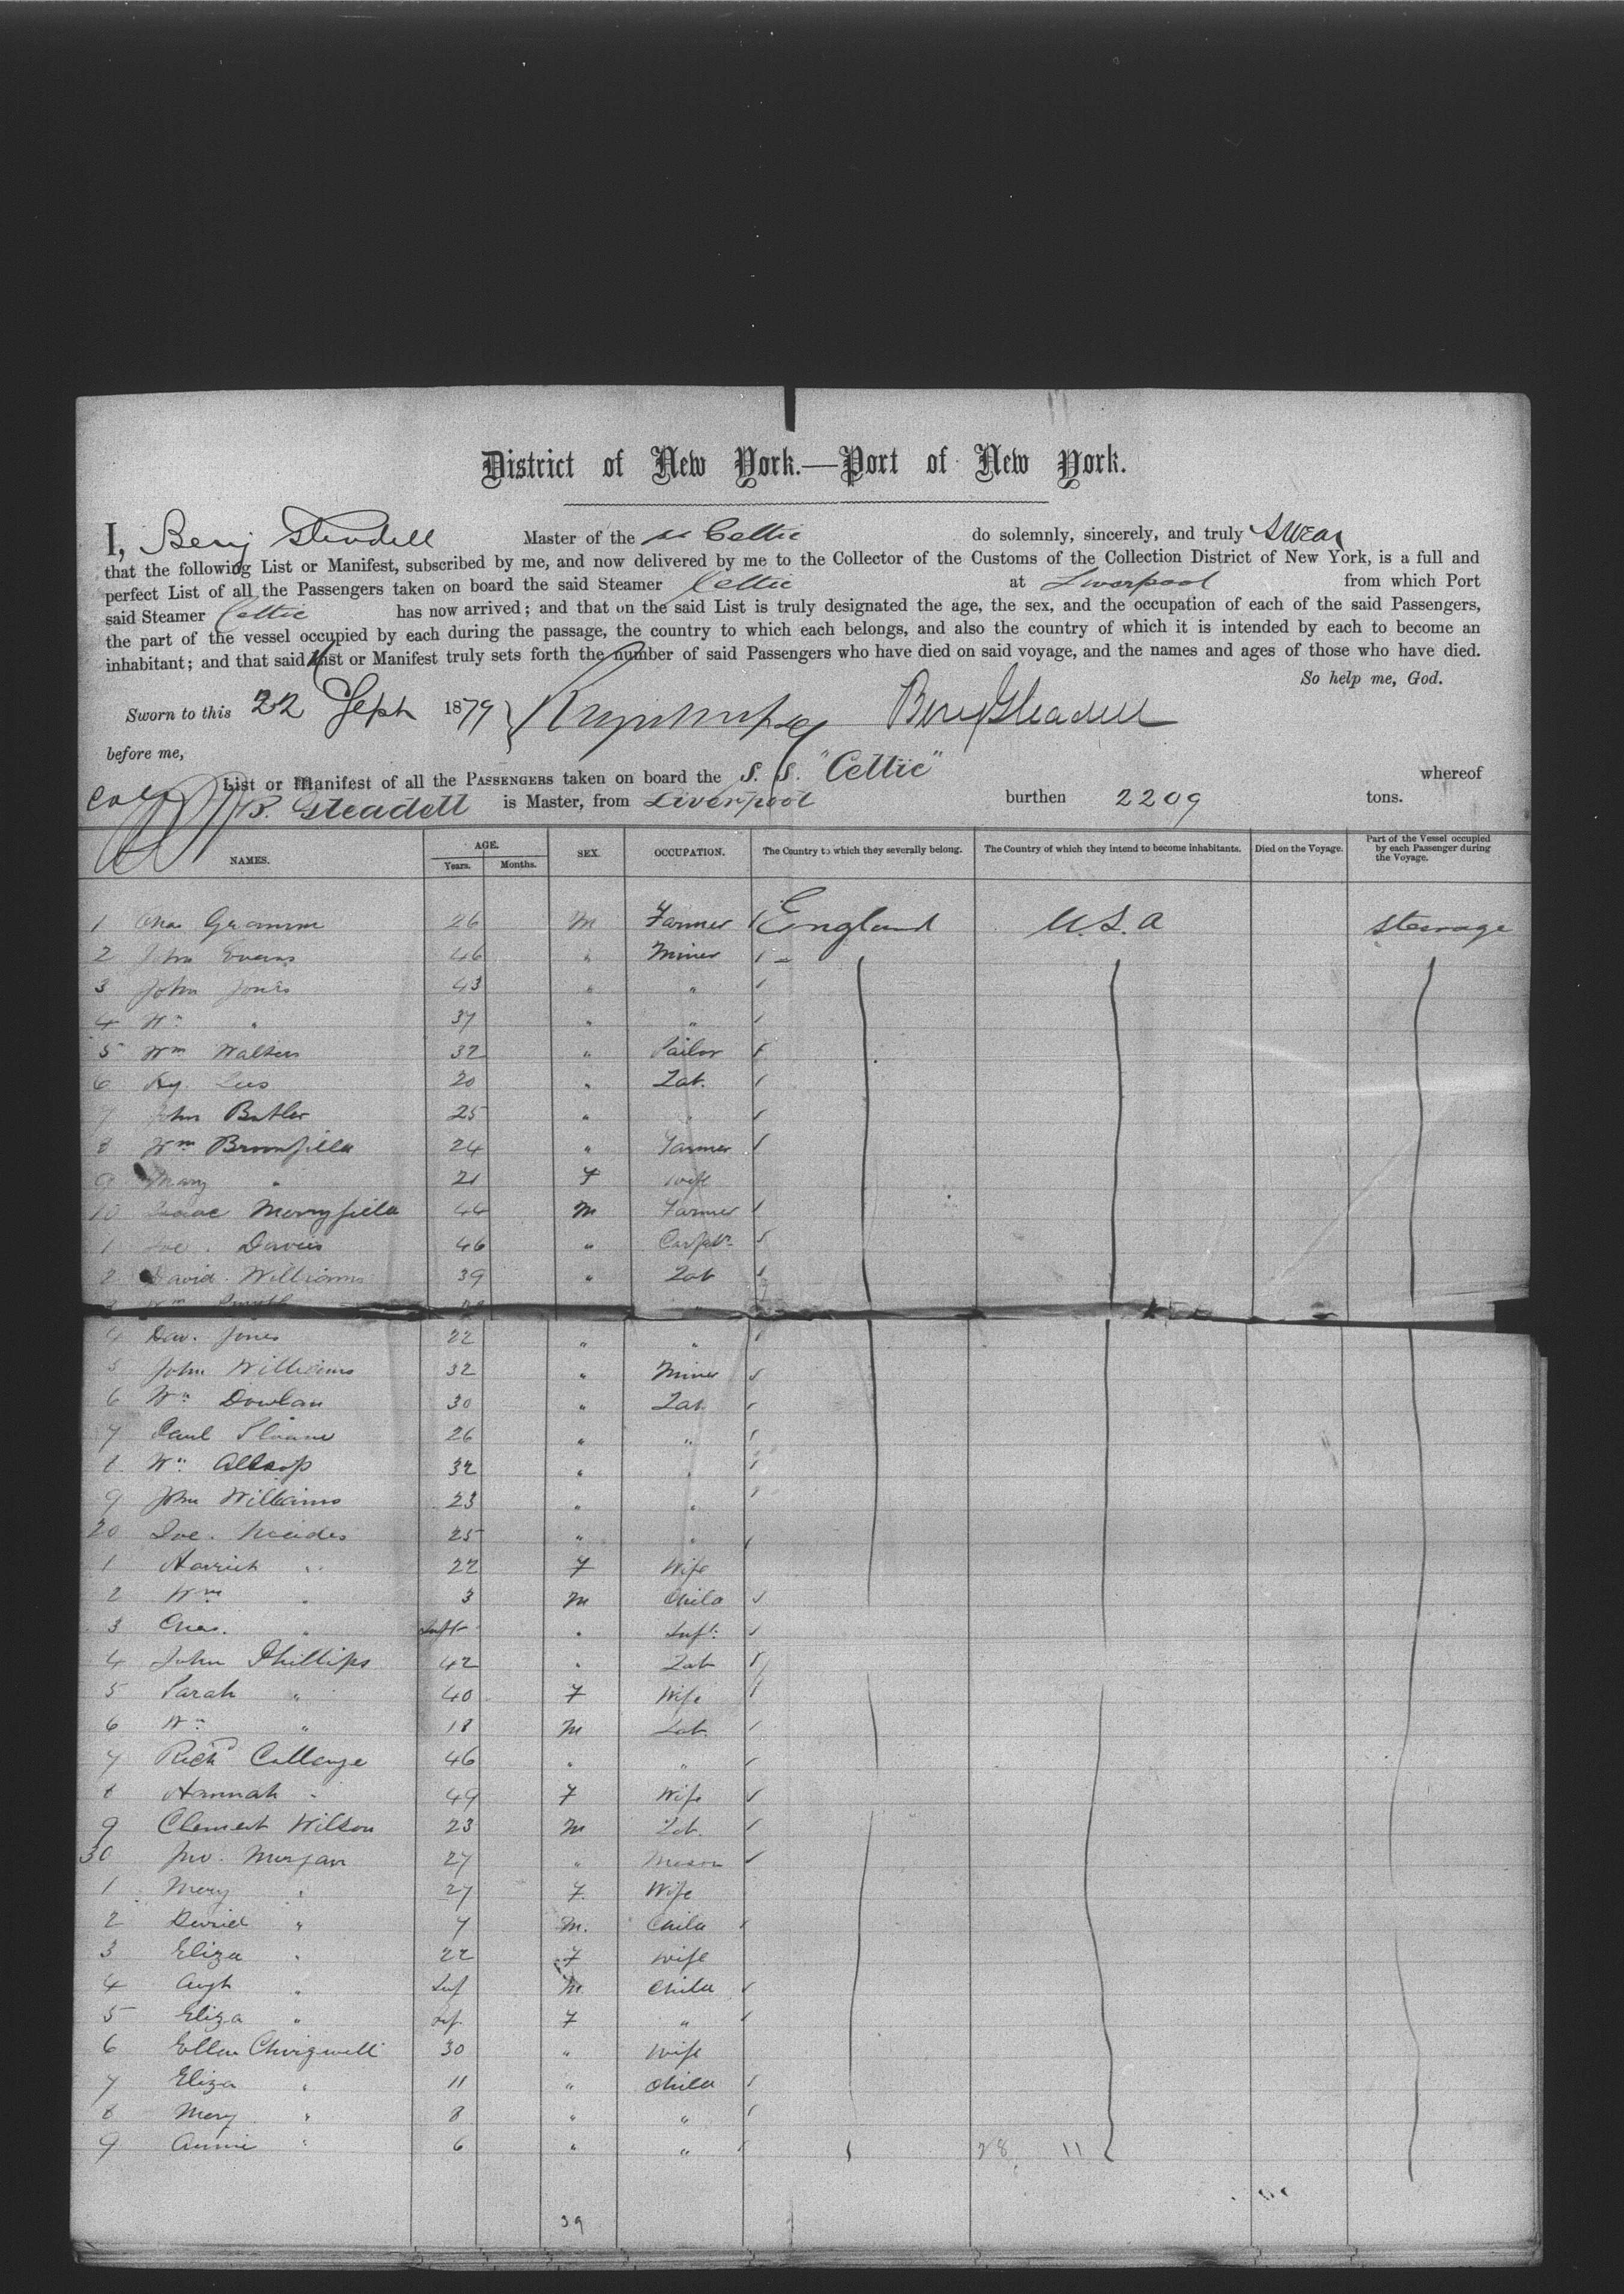 District of New York.—Port of New York.
I, Benj Gleadell Master of the ss Celtic do solemnly, sincerely, and truly swear
that the following List or Manifest, subscribed by me, and now delivered by me to the Collector of the Customs of the Collection District of New York, is a full and
perfect List of all the Passengers taken on board the said Steamer Celtic at Liverpool from which Port
said Steamer Celtic has now arrived; and that on the said List is truly designated the age, the sex, and the occupation of each of the said Passengers,
the part of the vessel occupied by each during the passage, the country to which each belongs, and also the country of which it is intended by each to become an
inhabitant; and that said List or Manifest truly sets forth the number of said Passengers who have died on said voyage, and the names and ages of those who have died.
So help me, God.
Sworn to this 22 Sept 1879 Benj Gleadell
before me,
List or Manifest of all the PASSENGERS taken on board the S. S. "Celtic" whereof
B. Gleadell is Master, from Liverpool burthen 2209 tons.
NAMES. AGE. Years. Months. SEX. OCCUPATION. The Country to which they severally belong. The Country of which they intend to become inhabitants. Died on the Voyage. Part of the Vessel occupied by each Passenger during the Voyage.
1 Chas Gramm 26 M Farmer England U.S.A steerage
2 John Evans 46 " Miner
3 John Jones 43 " "
4 Wm " 37 " "
5 Wm Walters 32 " Sailor
6 Hy. Lees 20 " Lab.
7 John Butler 25 " "
8 Wm Broomfield 24 " Farmer
9 Mary " 21 F wife
10 Isaac Merryfield 44 M Farmer
1 Davies 46 " Carptr
2 David Williams 39 " Lab
3 Wm Smyth "
4 Dav. Jones 22 " "
5 John Williams 32 " Miner
6 Wm Dowlan 30 " Lab.
7 Paul Sloane 26 " "
8 Wm Allsop 32 " "
9 John Williams 23 " "
20 Joe. Meades 25 " "
1 Harriet " 22 F Wife
2 Wm " 3 M Child
3 Chas. " Inft " Inft
4 John Phillips 42 " Lab
5 Sarah " 40 F Wife
6 Wm " 18 M Lab.
7 Richd Callenge 46 " "
8 Hannah " 49 F Wife
9 Clement Wilson 23 M Lab.
30 Jno. Morgan 27 " Mason
1 Mary " 27 F. Wife
2 David " 7 M. Child
3 Eliza " 22 F wife
4 Augh " Inf M Child
5 Eliza " Inf. F "
6 Ellen Chirgwell 30 " wife
7 Eliza " 11 " Child
8 Mary " 8 " "
9 Annie " 6 " "
28 11
39